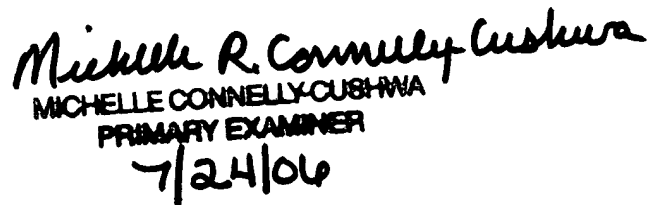 Michelle R. Connelly-Cushwa
MICHELLE CONNELLY-CUSHWA
PRIMARY EXAMINER
7/24/06